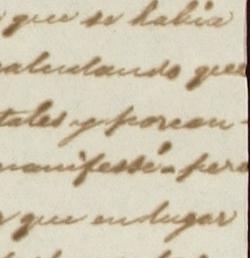 que se habia
calculando que
tales y porcon-
manifestó - pero
que en lugar